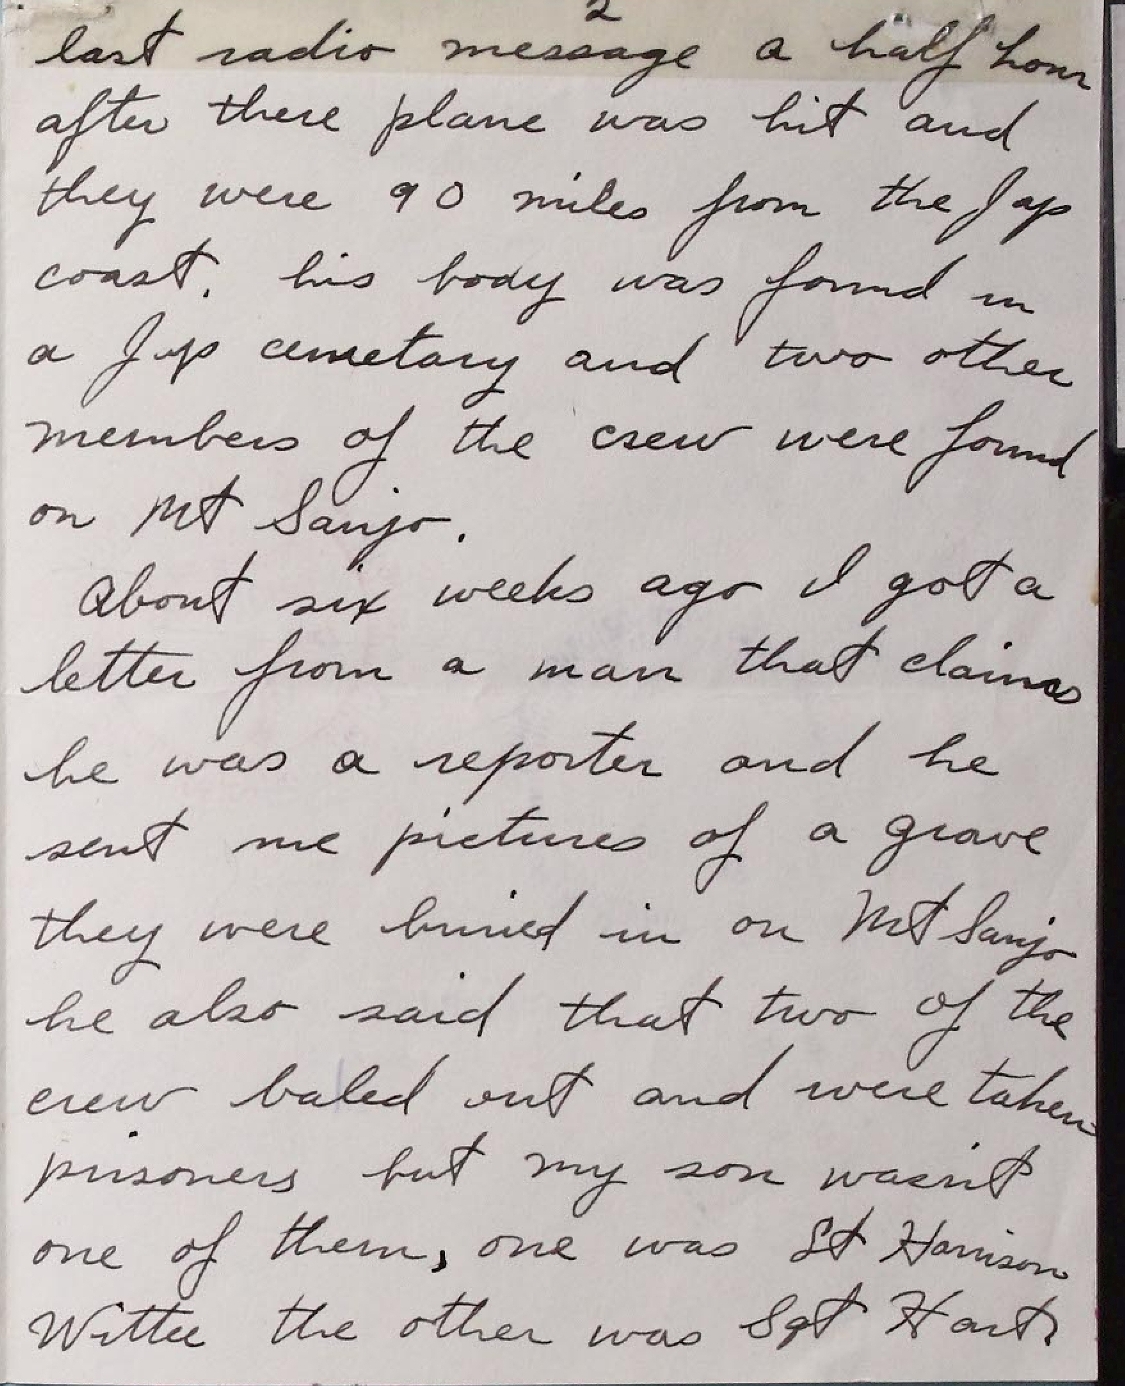 2
last radio message a half hour
after there plane was hit and
they were 90 miles from the Jap
coast. his body was found in
a Jap cemetary and two other
members of the crew were found
on Mt Sanjo.
About six weeks ago I got a
letter from a man that claims
he was a reporter and he
sent me pictures of a grave
they were buried in on Mt Sanjo
he also said that two of the
crew baled out and were taken
prisoners but my son wasn't
one of them, one was Lt Harrison
Wittee the other was Sgt Hart.